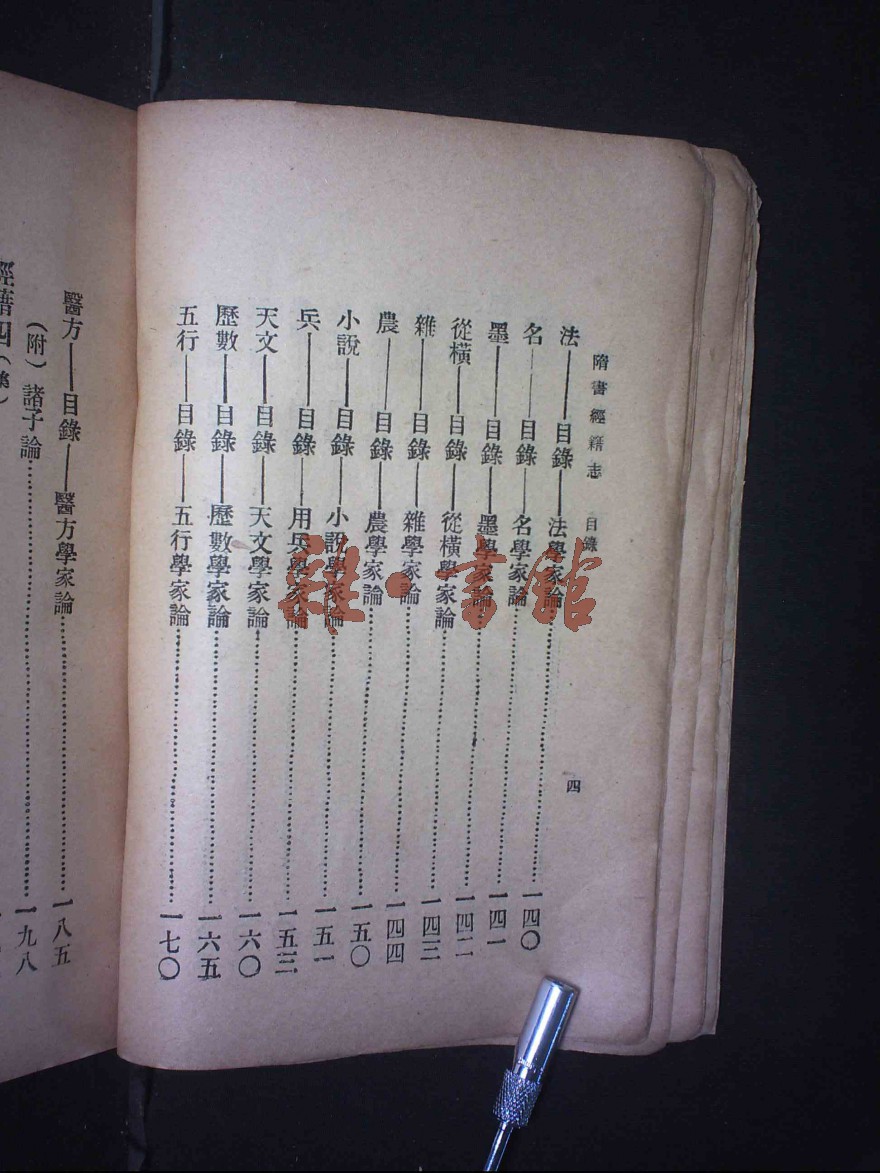 隋書經籍志　目錄　四
法——目錄——法學家論……一四〇
名——目錄——名學家論……一四一
墨——目錄——墨學家論……一四二
從橫——目錄——從橫學家論……一四三
雜——目錄——雜學家論……一四四
農——目錄——農學家論……一五〇
小說——目錄——小說學家論……一五一
兵——目錄——用兵學家論……一五三
天文——目錄——天文學家論……一六〇
歷數——目錄——歷數學家論……一六五
五行——目錄——五行學家論……一七〇
醫方——目錄——醫方學家論……一八五
（附）諸子論……一九八
經籍四（集）
雜·書館